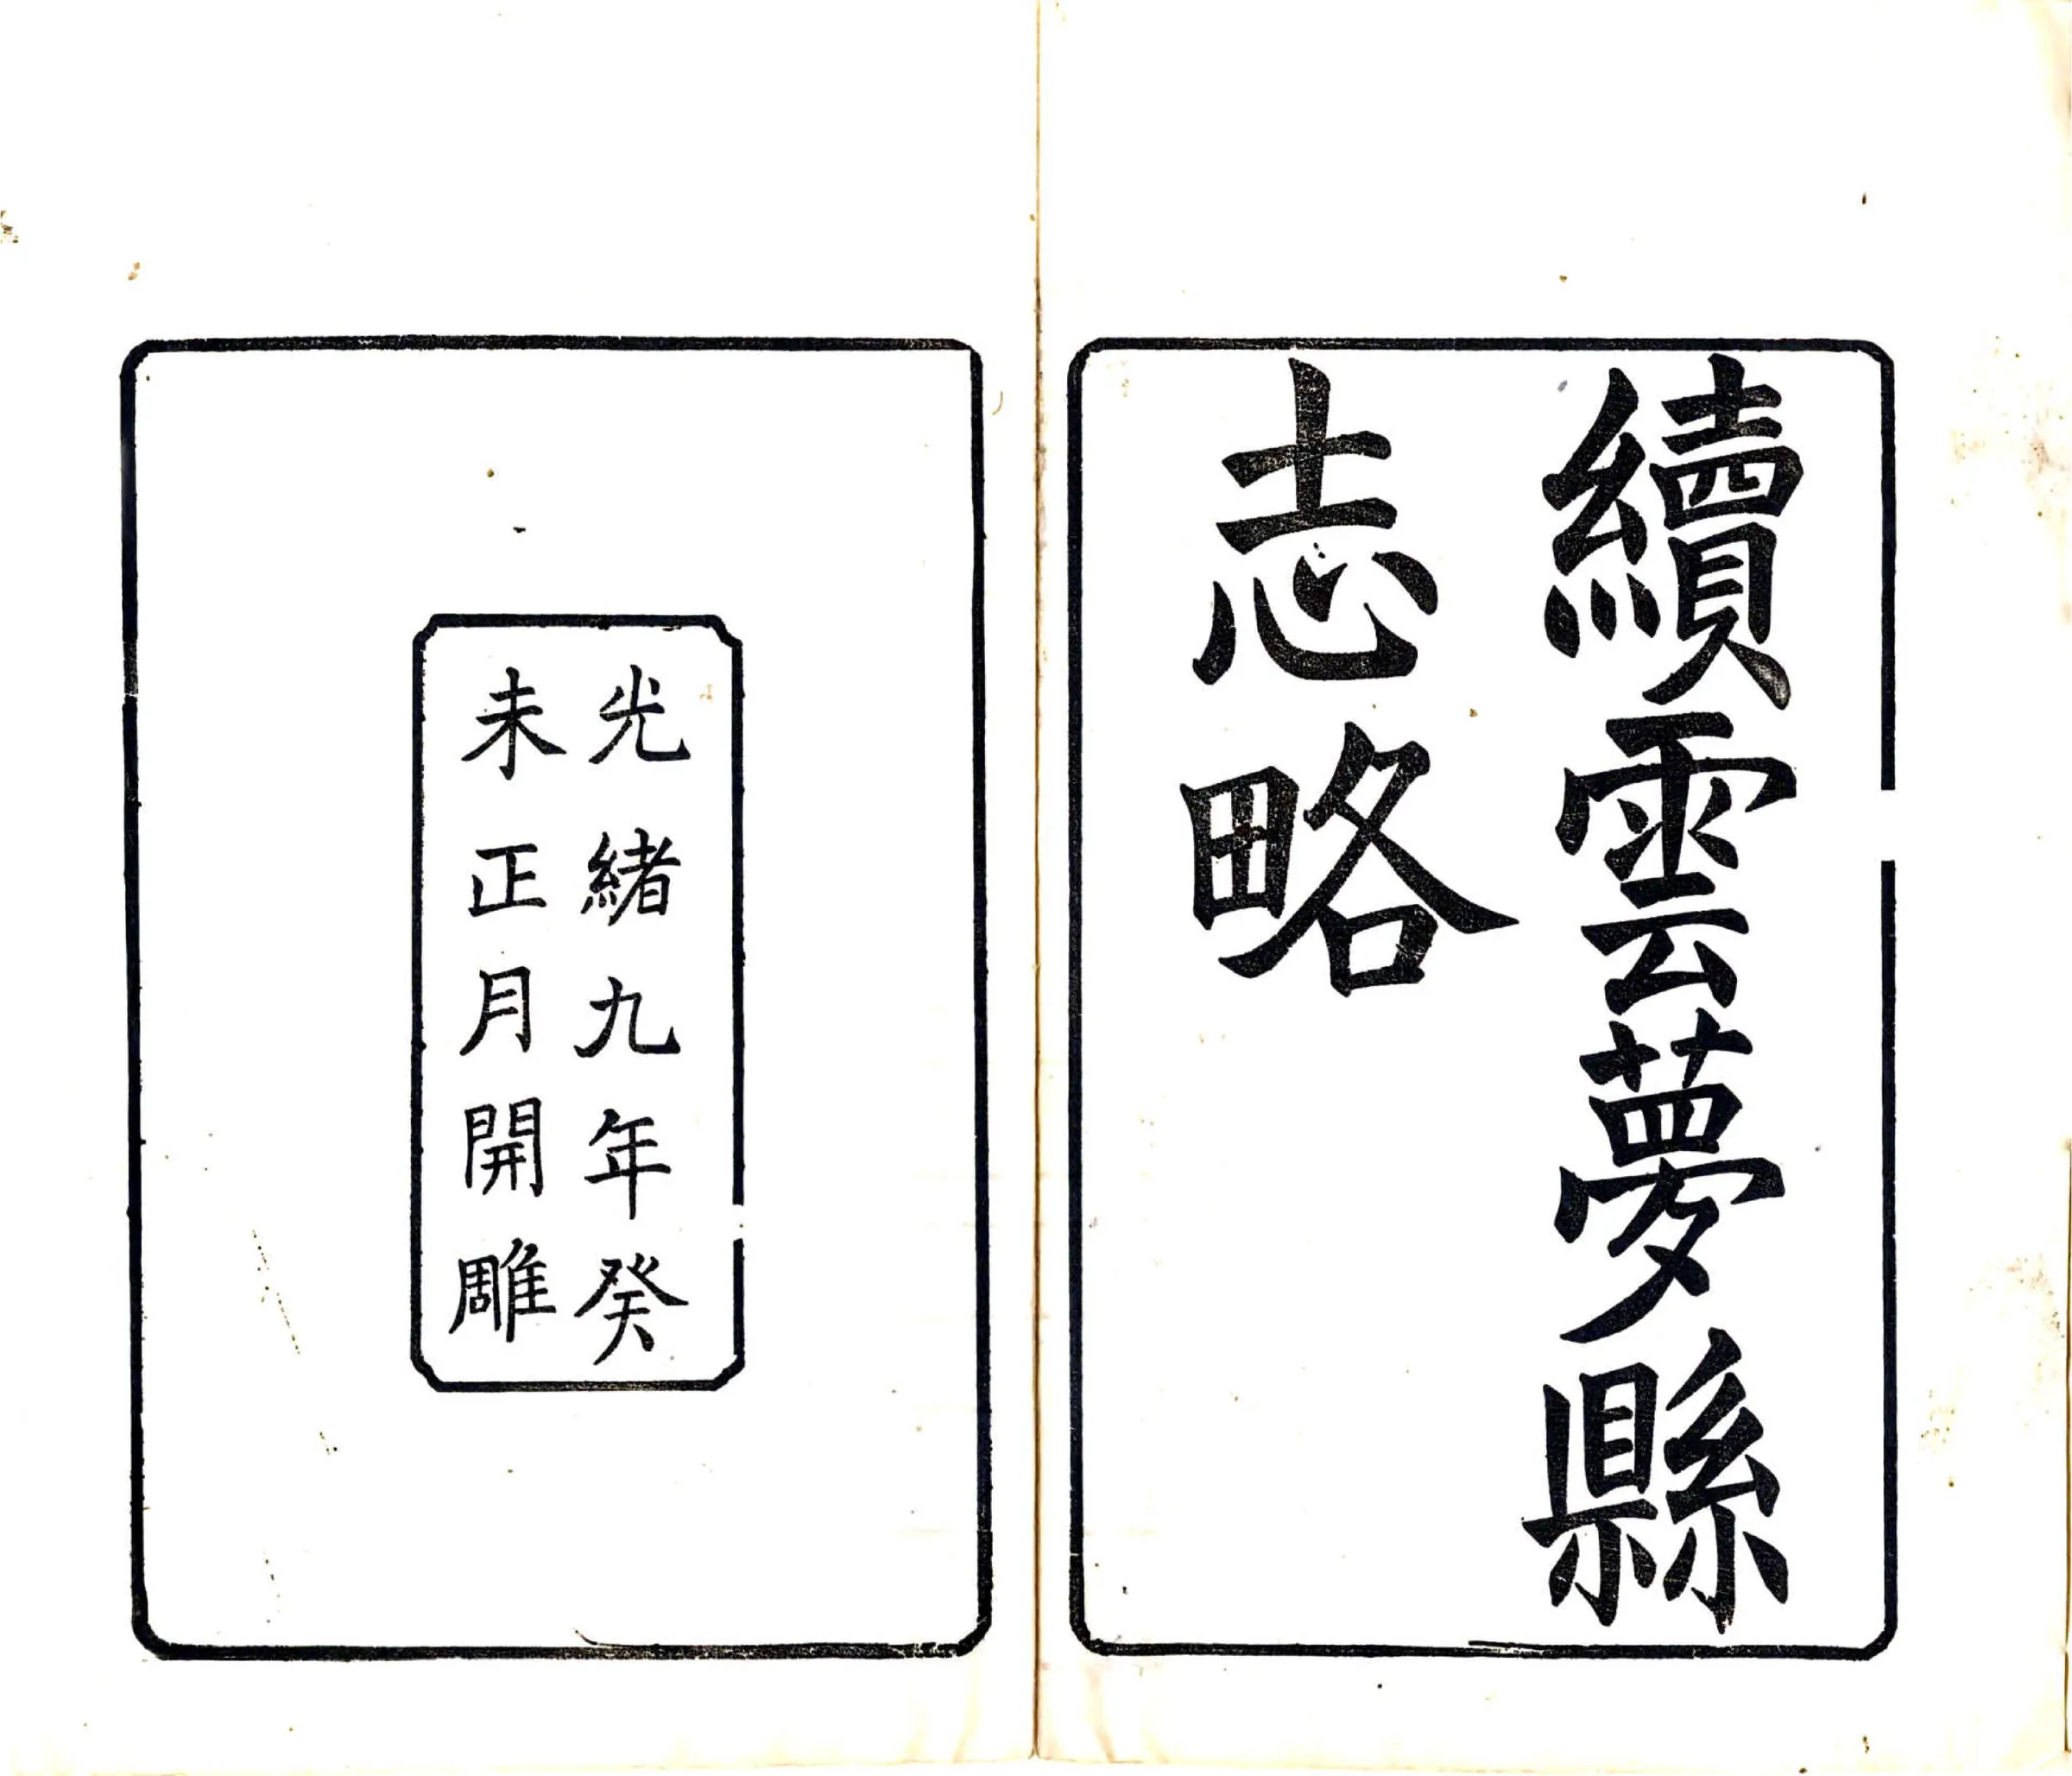 續雲夢縣
志略
光緒九年癸
未正月開雕